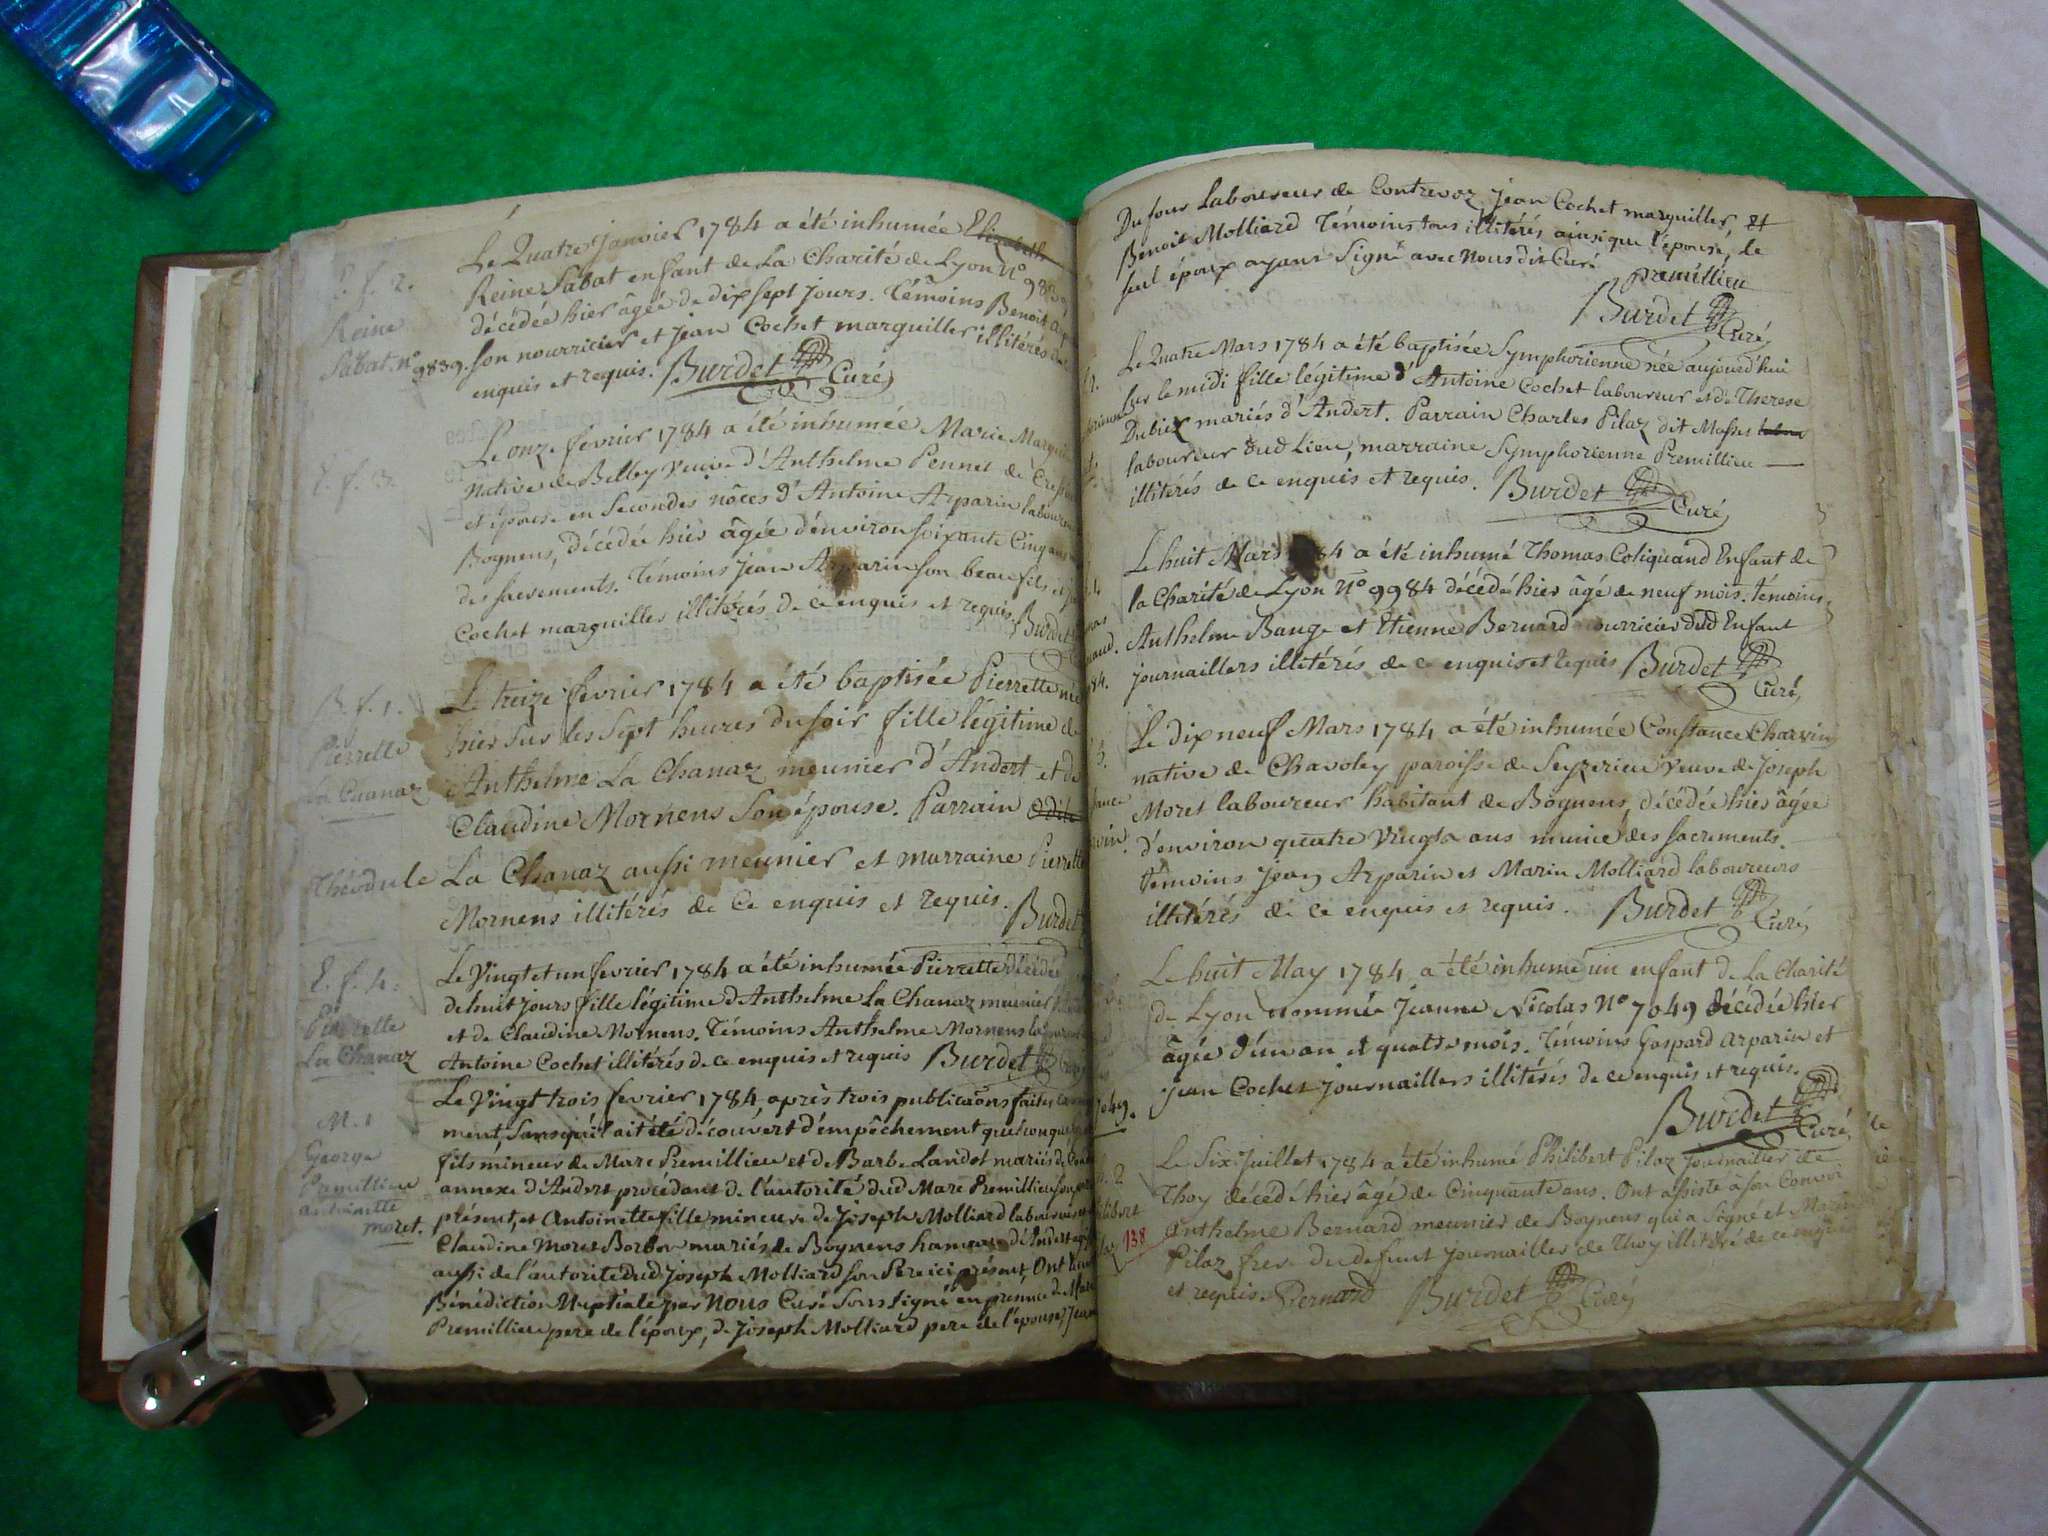 E. f. 2.
Reine
Sabat. n° 9839.
Le Quatre Janvier 1784 a été inhumée Elizabeth
Reine Sabat enfant de La Charité de Lyon N° 9839
décédée hier âgée de dix sept jours. Témoins Benoit
son nourricier et Jean Cochet marguillier illitérés de ce
enquis et requis. Burdet Curé
E. f. 3.
Le onze fevrier 1784 a été inhumée Marie
Native de Belley veuve d'Anthelme Pennet de
et épouse en Secondes nôces d'Antoine Arparin laboureur
Bognens, décédée hier âgée d'environ soixante Cinq ans
des sacrements. Témoins Jean Arparin son beau fils et
Cochet marguillier illitérés de ce enquis et requis. Burdet
B. f. 1.
Pierrette
La Chanaz
Le treize fevrier 1784 a été baptisée Pierrette née
hier sur les sept heures du soir fille légitime de
Anthelme La Chanaz meunier d'Andert et de
Claudine Mornens Son épouse. Parrain Odile
Théodule La Chanaz aussi meunier et marraine Pierrette
Mornens illitérés de ce enquis et requis. Burdet
E. f. 4.
Pierrette
La Chanaz
Le Vingt et un fevrier 1784 a été inhumée Pierrette décédée
de huit jours fille légitime d'Anthelme La Chanaz meunier
et de Claudine Mornens. Témoins Anthelme Mornens laboureur
Antoine Cochet illitérés de ce enquis et requis Burdet Curé
M. 1
George
Premillieu
antoinette
moret.
Le Vingt trois fevrier 1784 après trois publicaõns faites
ment, Sans qu'il ait été découvert d'empêchement quelconque
fils mineur de Marc Premillieu et de Barbe Landot mariés de
annexe d'Andert procédant de l'autorité dud Marc Premillieu son pere
présent, et Antoinette fille mineure de Joseph Molliard laboureur et
Claudine Moret Borbon mariés de Bognens hameau d'Andert
aussi de l'autorité dud Joseph Molliard son Pere ici présent, Ont
Bénédiction Nuptiale par Nous Curé Soussigné en présence de Marc
Premillieu pere de l'époux, de Joseph Molliard pere de l'épouse, Jean
Dufour laboureur de Contrevoz, Jean Cochet marguillier, et
Benoit Molliard Témoins tous illitérés, ainsi que l'épouse, le
seul époux ayant Signé avec Nous dit Curé
Premillieu
Burdet Curé
Le Quatre Mars 1784 a été baptisée Symphorienne née aujourd'hui
sur le midi fille légitime d'Antoine Cochet laboureur et de Therese
Dubiez mariés d'Andert. Parrain Charles Pilaz dit Masset
laboureur dud Lieu, marraine Symphorienne Premillieu
illitérés de ce enquis et requis. Burdet Curé
Le huit Mars 1784 a été inhumé Thomas Coliquand Enfant de
la Charité de Lyon N° 9984 décédé hier âgé de neuf mois. témoins
Anthelme Bange et Etienne Bernard nourricier dud Enfant
journaillers illitérés de ce enquis et requis Burdet Curé
Le dix neuf Mars 1784 a été inhumée Constance Charvin
native de Chavoley paroisse de Seyzerieu Veuve de Joseph
Moret laboureur habitant de Bognens, décédée hier âgée
d'environ quatre Vingts ans munie des sacrements.
témoins Jean Arparin et Marin Molliard laboureurs
illitérés de ce enquis et requis. Burdet Curé
Le huit May 1784 a été inhumé un enfant de La Charité
de Lyon nommée Jeanne Nicolas N° 7049 décédée hier
âgée d'un an et quatre mois. Témoins Gaspard arparin et
Jean Cochet journaillers illitérés de ce enquis et requis.
7049.
Burdet Curé
Le Six Juillet 1784 a été inhumé Philibert Pilaz journailler de
Thoy décédé hier âgé de Cinquante ans. Ont assisté a son Convoi
Anthelme Bernard meunier de Bognens qui a Signé et Marin
138
Pilaz frere du defunt journailler de Thoy illitéré de ce enquis
et requis. Bernard Burdet Curé